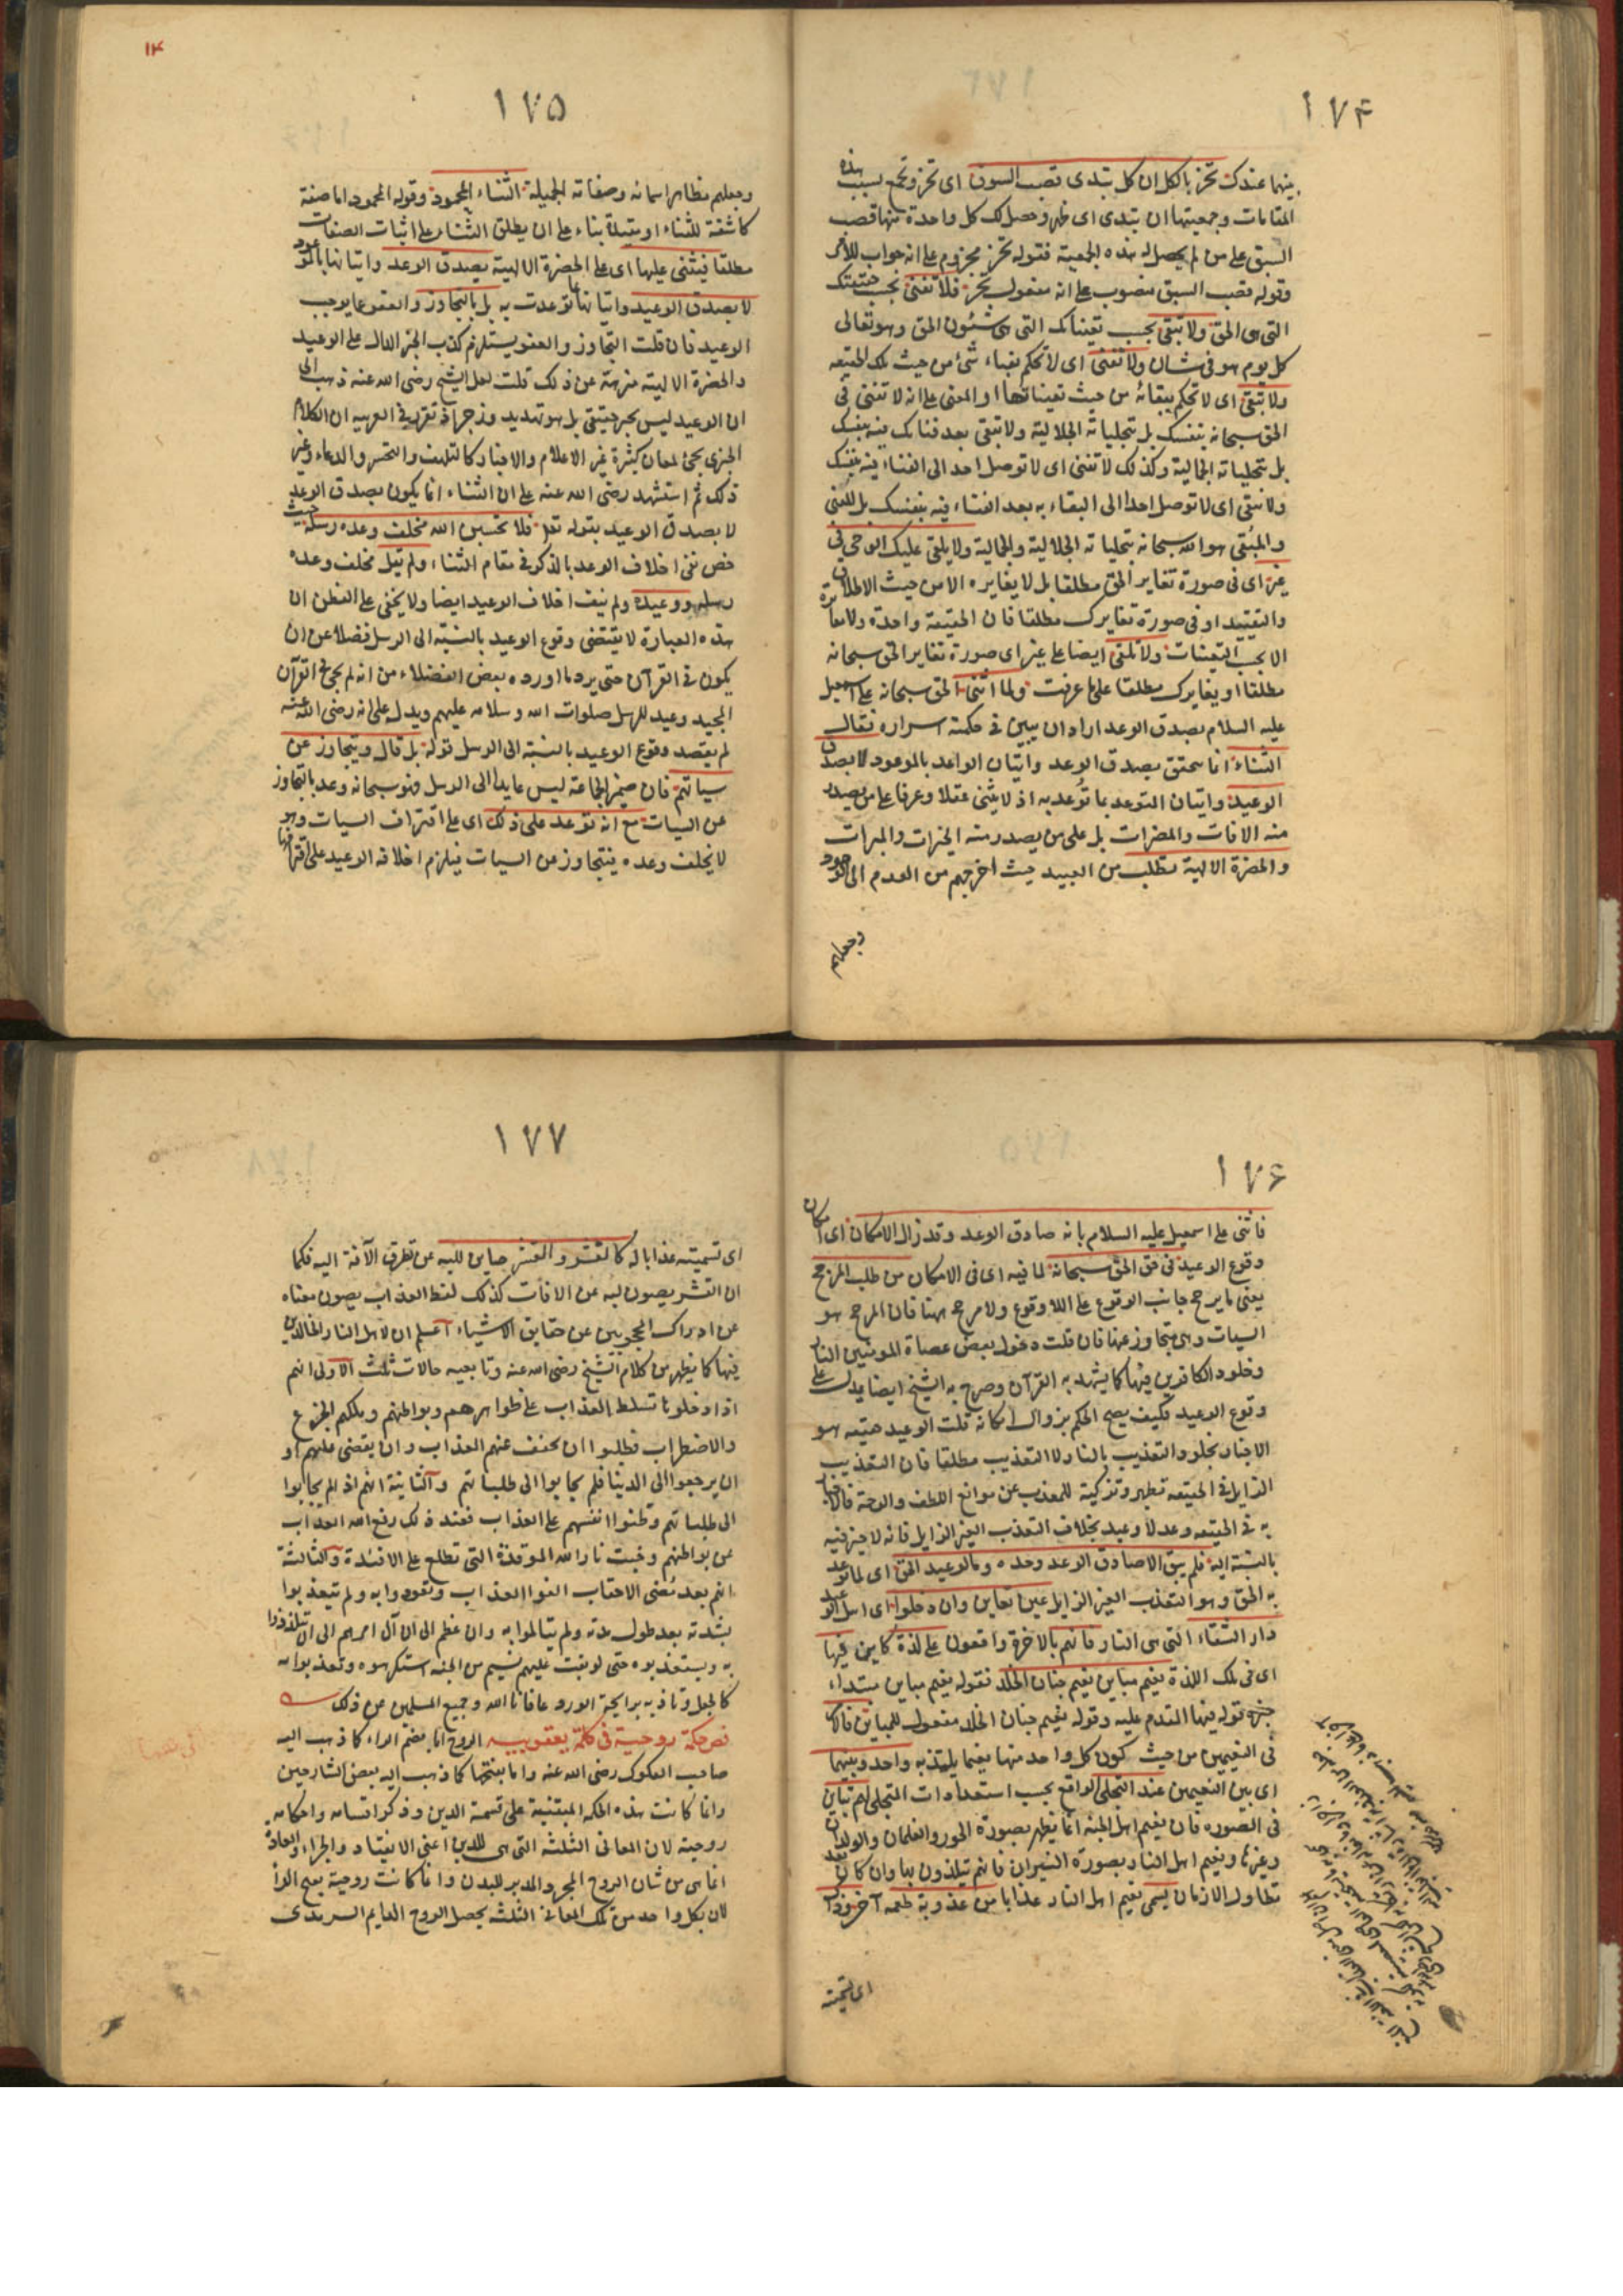 ١٧٤
بينهما عندك تحز بالكل ان كل تبدى قصب السبق اى تحز وتجمع بسبب هذه
المقامات وجمعيتها ان تبدى اى ظهر وحصل لك كل واحدة منها قصب
السبق على من لم يحصل له هذه الجمعية فقوله تحز مجزوم على انه جواب للامر
وقوله قصب السبق منصوب على انه مفعول تحز فلا تفنى بحسب حقيقتك
التى هى الحق ولا تبقى بحسب تعيناتك التى هى شئون الحق وهو تعالى
كل يوم هو فى شان ولا تفنى اى لا تحكم بفناء شئ من حيث تلك الحقيقه
ولا تبقى اى لا تحكم ببقائه من حيث تعيناتها او المعنى على انه لا تفنى فى
الحق سبحانه بنفسك بل بتجلياته الجلالية ولا تبقى بعد فنائك فيه بنفسك
بل بتجلياته الجمالية وكذلك لا تفنى اى لا توصل احدا الى الفناء فيه بنفسك
ولا تبقى اى لا توصل احدا الى البقاء به بعد الفناء فيه بنفسك بل المفنى
والمبقى هو الله سبحانه بتجلياته الجلالية والجمالية ولا يلقى عليك الوحى فى
غير اى فى صورة تغاير الحق مطلقا بل لا يغايره الا من حيث الاطلاق
والتقييد او فى صورة تغايرك مطلقا فان الحقيقة واحدة ولا مغايرة
الا بحسب التعينات ولا تلقى ايضا على غير اى صورة تغاير الحق سبحانه
مطلقا او يغايرك مطلقا على ما عرفت ولما اثنى الحق سبحانه على اسمعيل
عليه السلام بصدق الوعد اراد ان يبين فى حكمته اسراره فقال
الثناء انما يتحقق بصدق الوعد واتيان الواعد بالموعود لا بصدق
الوعيد واتيان المتوعد بما توعد به اذ لا يثنى عقلا وعرفا على من يصدر
منه الافات والمضرات بل على من يصدر منه الخيرات والمبرات
والحضرة الالهية تطلب من العبيد حيث اخرجهم من العدم الى الوجود
وجعلهم
١٤
١٧٥
وجعلهم مظاهر اسمائه وصفاته الجميلة الثناء المحمود وقوله المحمود اما صفة
كاشفة للثناء او مقيدة بناء على ان يطلق الثناء على اثبات الصفات
مطلقا فيثنى عليها اى على الحضرة الالهية بصدق الوعد واتيانها بالموعود
لا بصدق الوعيد واتيانها بما توعدت به بل بالتجاوز والعفو عما يوجب
الوعيد فان قلت التجاوز والعفو يستلزم كذب الخبر الدال على الوعيد
والحضرة الالهية منزهة عن ذلك قلت لعل الشيخ رضى الله عنه ذهب الى
ان الوعيد ليس بخبر حقيقى بل هو تهديد وزجر اذ تقرر فى العربيه ان الكلام
الخبرى يجئ لمعان كثيرة غير الاعلام والاخبار كالتلهف والتحسر والدعاء وغير
ذلك ثم استشهد رضى الله عنه على ان الثناء انما يكون بصدق الوعد
لا بصدق الوعيد بقوله تعالى فلا تحسبن الله مخلف وعده رسله حيث
خص نفى اخلاف الوعد بالذكر فى مقام الثناء ولم يقل مخلف وعده
رسله ووعيده ولم ينف اخلاف الوعيد ايضا ولا يخفى على الفطن ان
هذه العبارة لا يقتضى وقوع الوعيد بالنسبة الى الرسل فضلا عن ان
يكون فى القرآن حتى يرد ما اورده بعض الفضلاء من انه لم يجئ فى القرآن
المجيد وعيد للرسل صلوات الله وسلامه عليهم ويدل على انه رضى الله عنه
لم يقصد وقوع الوعيد بالنسبة الى الرسل قوله بل قال ويتجاوز عن
سياتهم فان ضمير الجماعة ليس عايدا الى الرسل فهو سبحانه وعد بالتجاوز
عن السيات مع انه توعد على ذلك اى على اقتراف السيات وهو
لا يخلف وعده فيتجاوز عن السيات فيلزم اخلافه الوعيد على اقترافها
١٧٦
فاثنى على اسمعيل عليه السلام بانه صادق الوعد وقد زال الامكان اى امكان
وقوع الوعيد فى حق الحق سبحانه لما فيه اى فى الامكان من طلب المرجح
يعنى ما يرجح جانب الوقوع على اللا وقوع ولا مرجح ههنا فان المرجح هو
السيات وهى متجاوز عنها فان قلت دخول بعض عصاة المومنين النار
وخلود الكافرين فيها كما يشهد به القرآن وصرح به الشيخ ايضا يدل على
وقوع الوعيد فكيف يصح الحكم بزوال امكانه قلت الوعيد حقيقه هو
الاخبار بخلود التعذيب بالنار لا التعذيب مطلقا فان التعذيب
الزايل فى الحقيقه تطهير وتزكية للمعذب عن موانع اللطف والرحمة فالاخبار
به فى الحقيقه وعد لا وعيد بخلاف التعذب الغير الزايل فانه لا خير فيه
بالنسبة اليه فلم يبق الا صادق الوعد وحده وما لوعيد الحق اى لما توعد
به الحق وهو التعذب الغير الزايل عين تعاين وان دخلوا اى اهل الوعيد
دار الشقاء التى هى النار فانهم بالاخرة واقعون على لذة كاين فيها
اى فى تلك اللذة نعيم مباين نعيم جنان الخلد فقوله نعيم مباين مبتداء
خبره قوله فيها المقدم عليه وقوله نعيم جنان الخلد مفعول للمباين فالامر
فى النعيمين من حيث كون كل واحد منها نعيما يلتذ به واحد وبينهما
اى بين النعيمين عند التجلى الواقع بحسب استعدادات المتجلى لهم تباين
فى الصوره فان نعيم اهل الجنه انما يظهر بصورة الحور والغلمان والولدان
وغيرها ونعيم اهل النار بصورة النيران فانهم يتلذذون بها وان كان بعد
تطاول الازمان يسمى نعيم اهل النار عذابا من عذوبة طعمه آخرا وذاك
اى تسميته
١٧٧
اى تسميته عذابا له كالقشر والقشر صاين للبه عن تطرق الآفة اليه فكما
ان القشر يصون لبه عن الافات كذلك لفظ العذاب يصون معناه
عن ادراك المحجوبين عن حقايق الاشياء اعلم ان لاهل النار الخالدين
فيها كما يظهر من كلام الشيخ رضى الله عنه وتابعيه حالات ثلث الاولى انهم
اذا دخلوها تسلط العذاب على ظواهرهم وبواطنهم وملكهم الجزع
والاضطراب فطلبوا ان يخفف عنهم العذاب وان يقضى عليهم او
ان يرجعوا الى الدنيا فلم يجابوا الى طلباتهم والثانية انهم اذ لم يجابوا
الى طلباتهم وطنوا انفسهم على العذاب فعند ذلك رفع الله العذاب
عن بواطنهم وخبت نار الله الموقدة التى تطلع على الافئدة والثالثة
انهم بعد مضى الاحقاب الفوا العذاب وتعودوا به ولم يتعذبوا
بشدته بعد طول مدته ولم يتالموا به وان عظم الى ان آل امرهم الى ان يتلذذوا
به ويستعذبوه حتى لو هبت عليهم نسيم من الجنه استكرهوه وتعذبوا به
كالجعل وتاذيه برايحة الورد عافانا الله وجميع المسلمين من ذلك
فص حكمة روحية فى كلمة يعقوبيه الروح اما بضم الراء كما ذهب اليه
صاحب الفكوك رضى الله عنه واما بفتحها كما ذهب اليه بعض الشارحين
وانما كانت هذه الحكمه المبتنية على قسمة الدين وذكر اقسامه واحكامه
روحية لان المعانى الثلثه التى هى للدين اعنى الانقياد والجزاء والعادة
انما هى من شان الروح المجرد المدبر للبدن وانما كانت روحية بفتح الراء
لان بكل واحد من تلك المعانى الثلثه يحصل الروح الدايم السرمدى